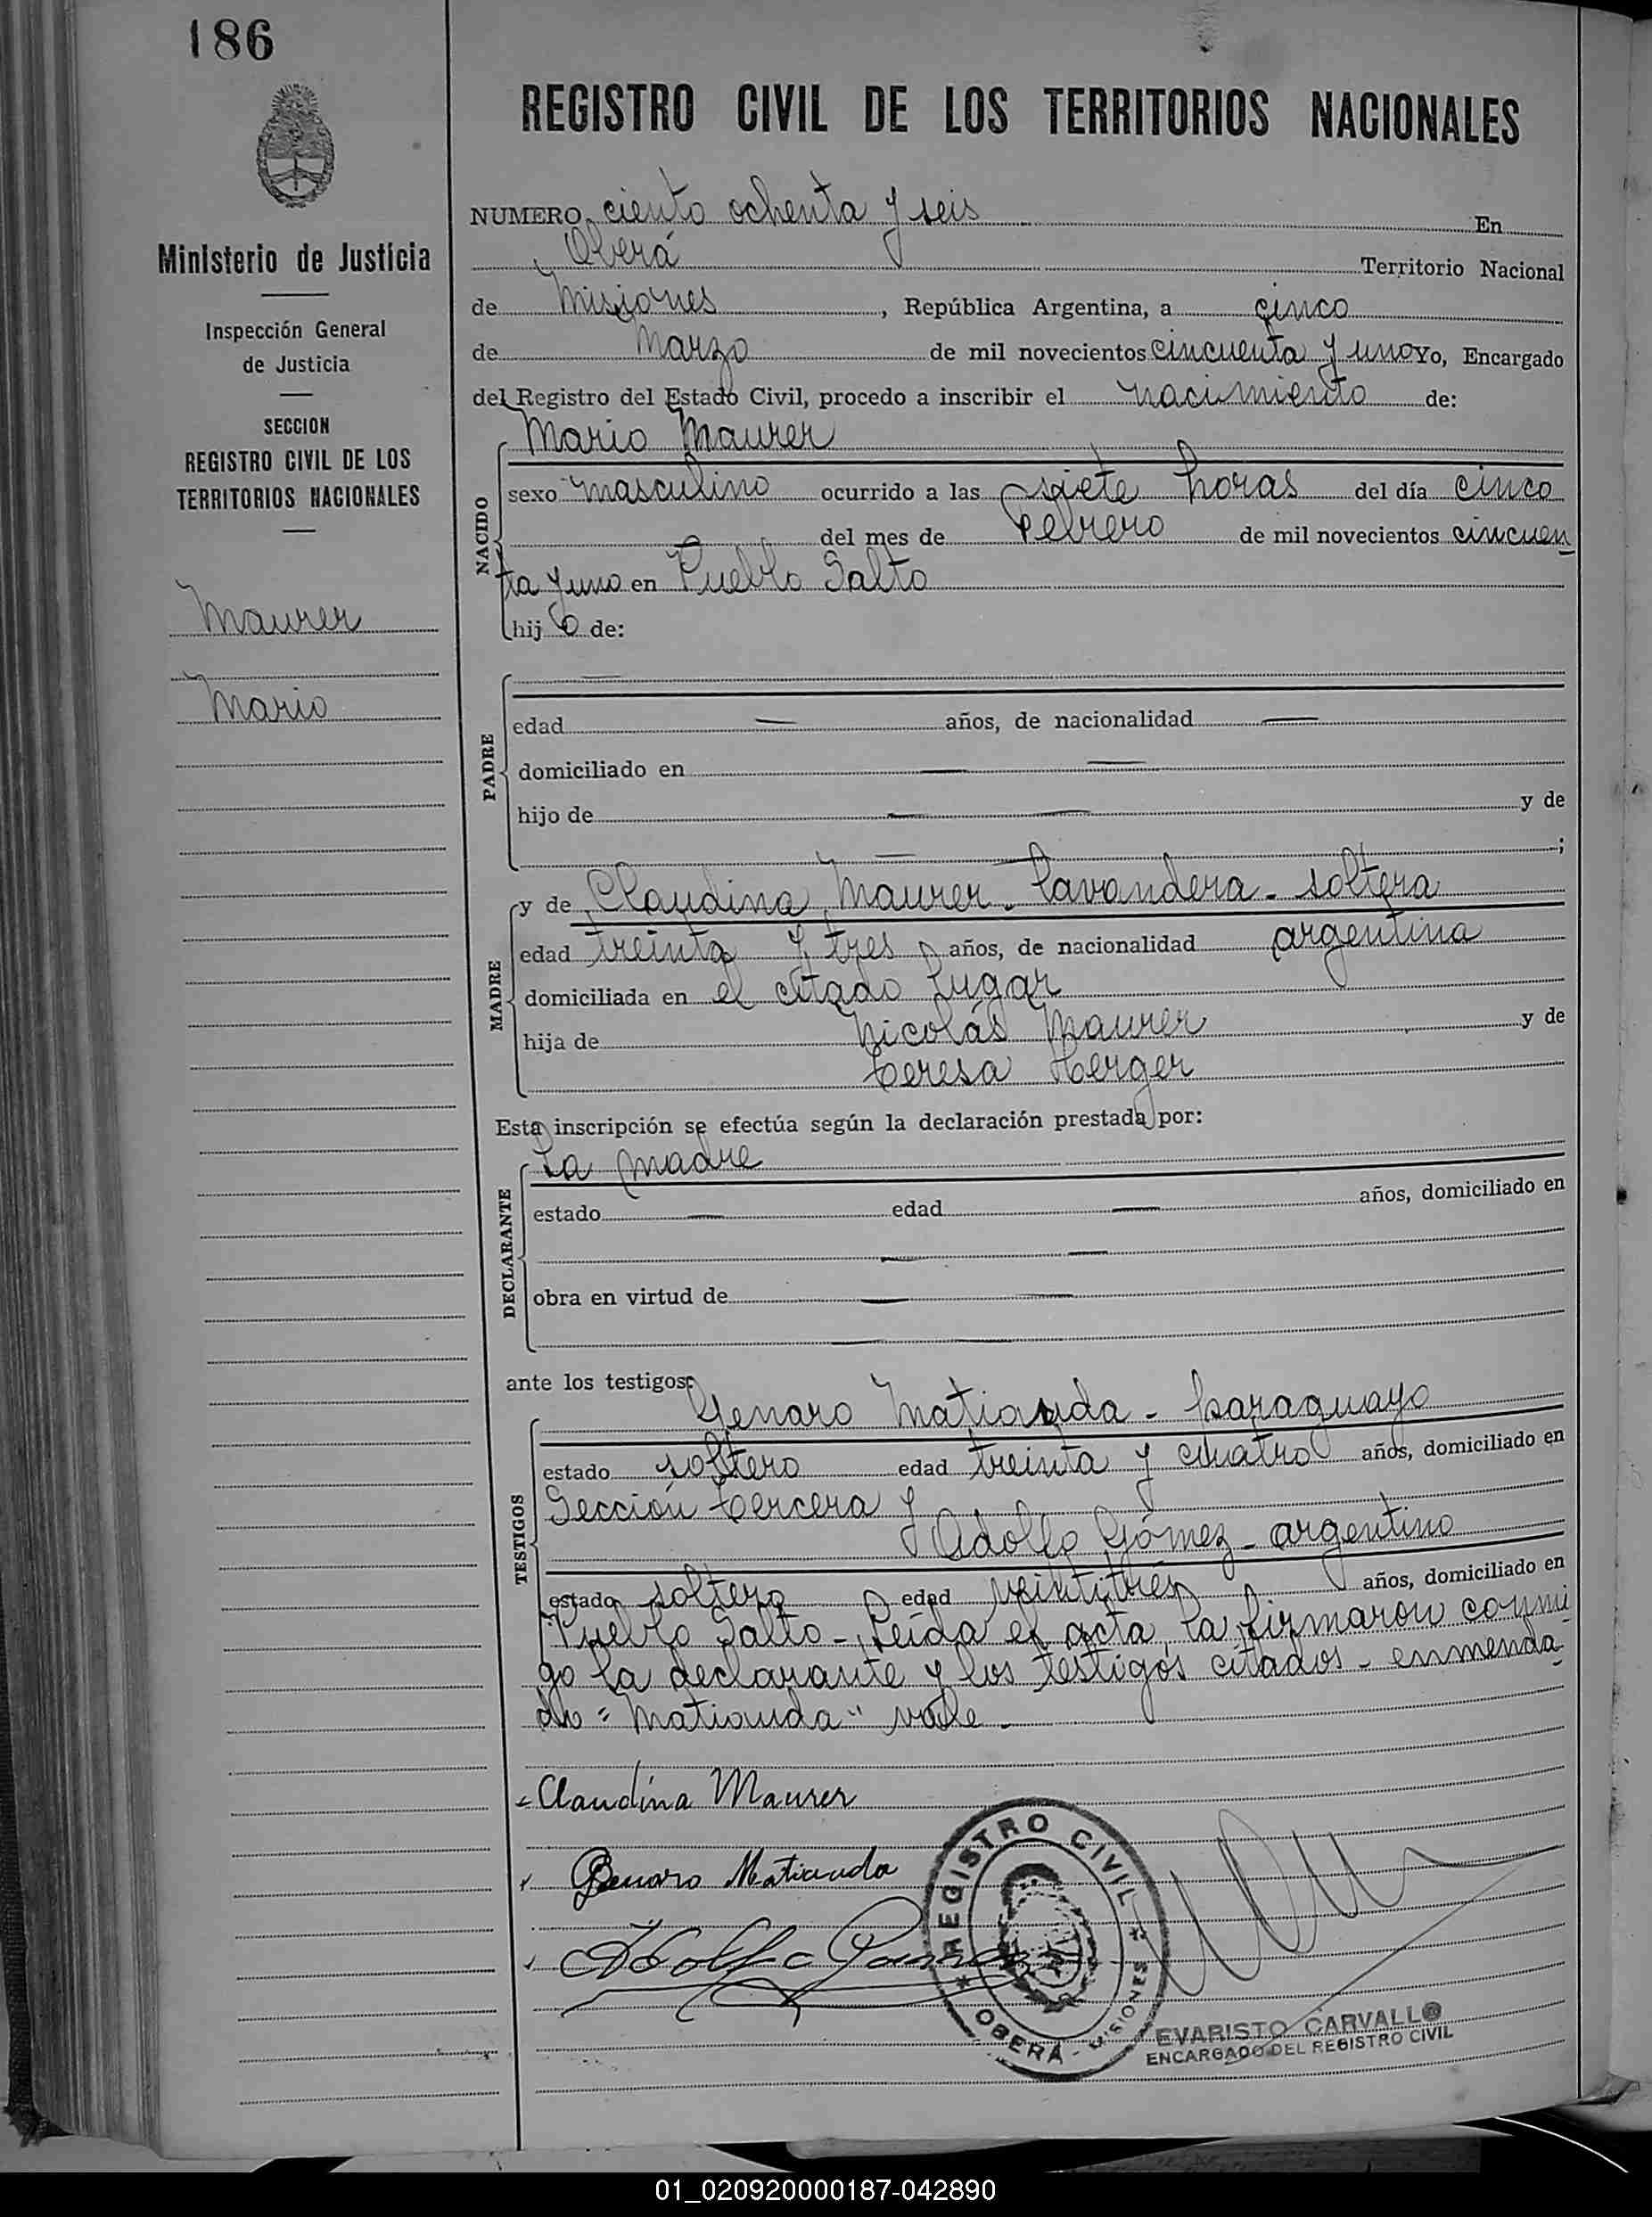 186
REGISTRO CIVIL DE LOS TERRITORIOS NACIONALES
Ministerio de Justicia
Inspección General
de Justicia
SECCION
REGISTRO CIVIL DE LOS
TERRITORIOS NACIONALES
Maurer
Mario
NUMERO ciento ochenta y seis En
Oberá Territorio Nacional
de Misiones, República Argentina, a cinco
de Marzo de mil novecientos cincuenta y uno Yo, Encargado
del Registro del Estado Civil, procedo a inscribir el nacimiento de:
Mario Maurer
NACIDO
sexo masculino ocurrido a las siete horas del día cinco
del mes de Febrero de mil novecientos cincuen
ta y uno en Pueblo Salto
hijo de:
PADRE
edad — años, de nacionalidad —
domiciliado en — —
hijo de — — y de
— ;
MADRE
y de Claudina Maurer - lavandera - soltera
edad treinta y tres años, de nacionalidad argentina
domiciliada en el citado lugar
hija de Nicolás Maurer y de
Teresa Herger
Esta inscripción se efectúa según la declaración prestada por:
DECLARANTE
La madre
estado — edad — años, domiciliado en
— —
obra en virtud de — —
ante los testigos:
TESTIGOS
Genaro Matiauda - paraguayo
estado soltero edad treinta y cuatro años, domiciliado en
Sección tercera y
Adolfo Gómez - argentino
estado soltero edad veintitrés años, domiciliado en
Pueblo Salto - Leída el acta, la firmaron conmi
go la declarante y los testigos citados - enmenda
do = "Matiauda" vale -
Claudina Maurer
Genaro Matiauda
Adolfo Gomez
REGISTRO CIVIL
OBERÁ - MISIONES
EVARISTO CARVALLO
ENCARGADO DEL REGISTRO CIVIL
01_020920000187-042890